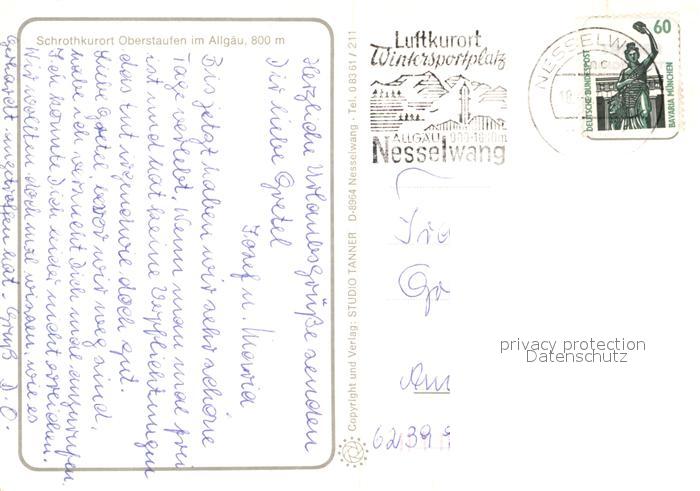 Schrothkurort Oberstaufen im Allgäu, 800 m
Herzliche Urlaubsgrüße senden
Dir liebe Gretel
Josef u. Maria.
Bis jetzt haben wir sehr schöne
Tage verlebt. Wenn man mal frei
ist und hat keine Verpflichtungen
das tut irgendwie doch gut.
Liebe Gretel bevor wir weg sind,
habe ich versucht Dich mal anzurufen
Ich konnte Dich leider nicht erreichen.
Wir wollten doch mal wissen, wie es
Gruß D. O.
Copyright und Verlag: STUDIO TANNER D-8964 Nesselwang - Tel. 0 83 61 / 2 11
Luftkurort
Wintersportplatz
ALLGÄU 900-1600m
Nesselwang
NESSELW
60
DEUTSCHE BUNDESPOST
BAVARIA MÜNCHEN
privacy protection
Datenschutz
6239